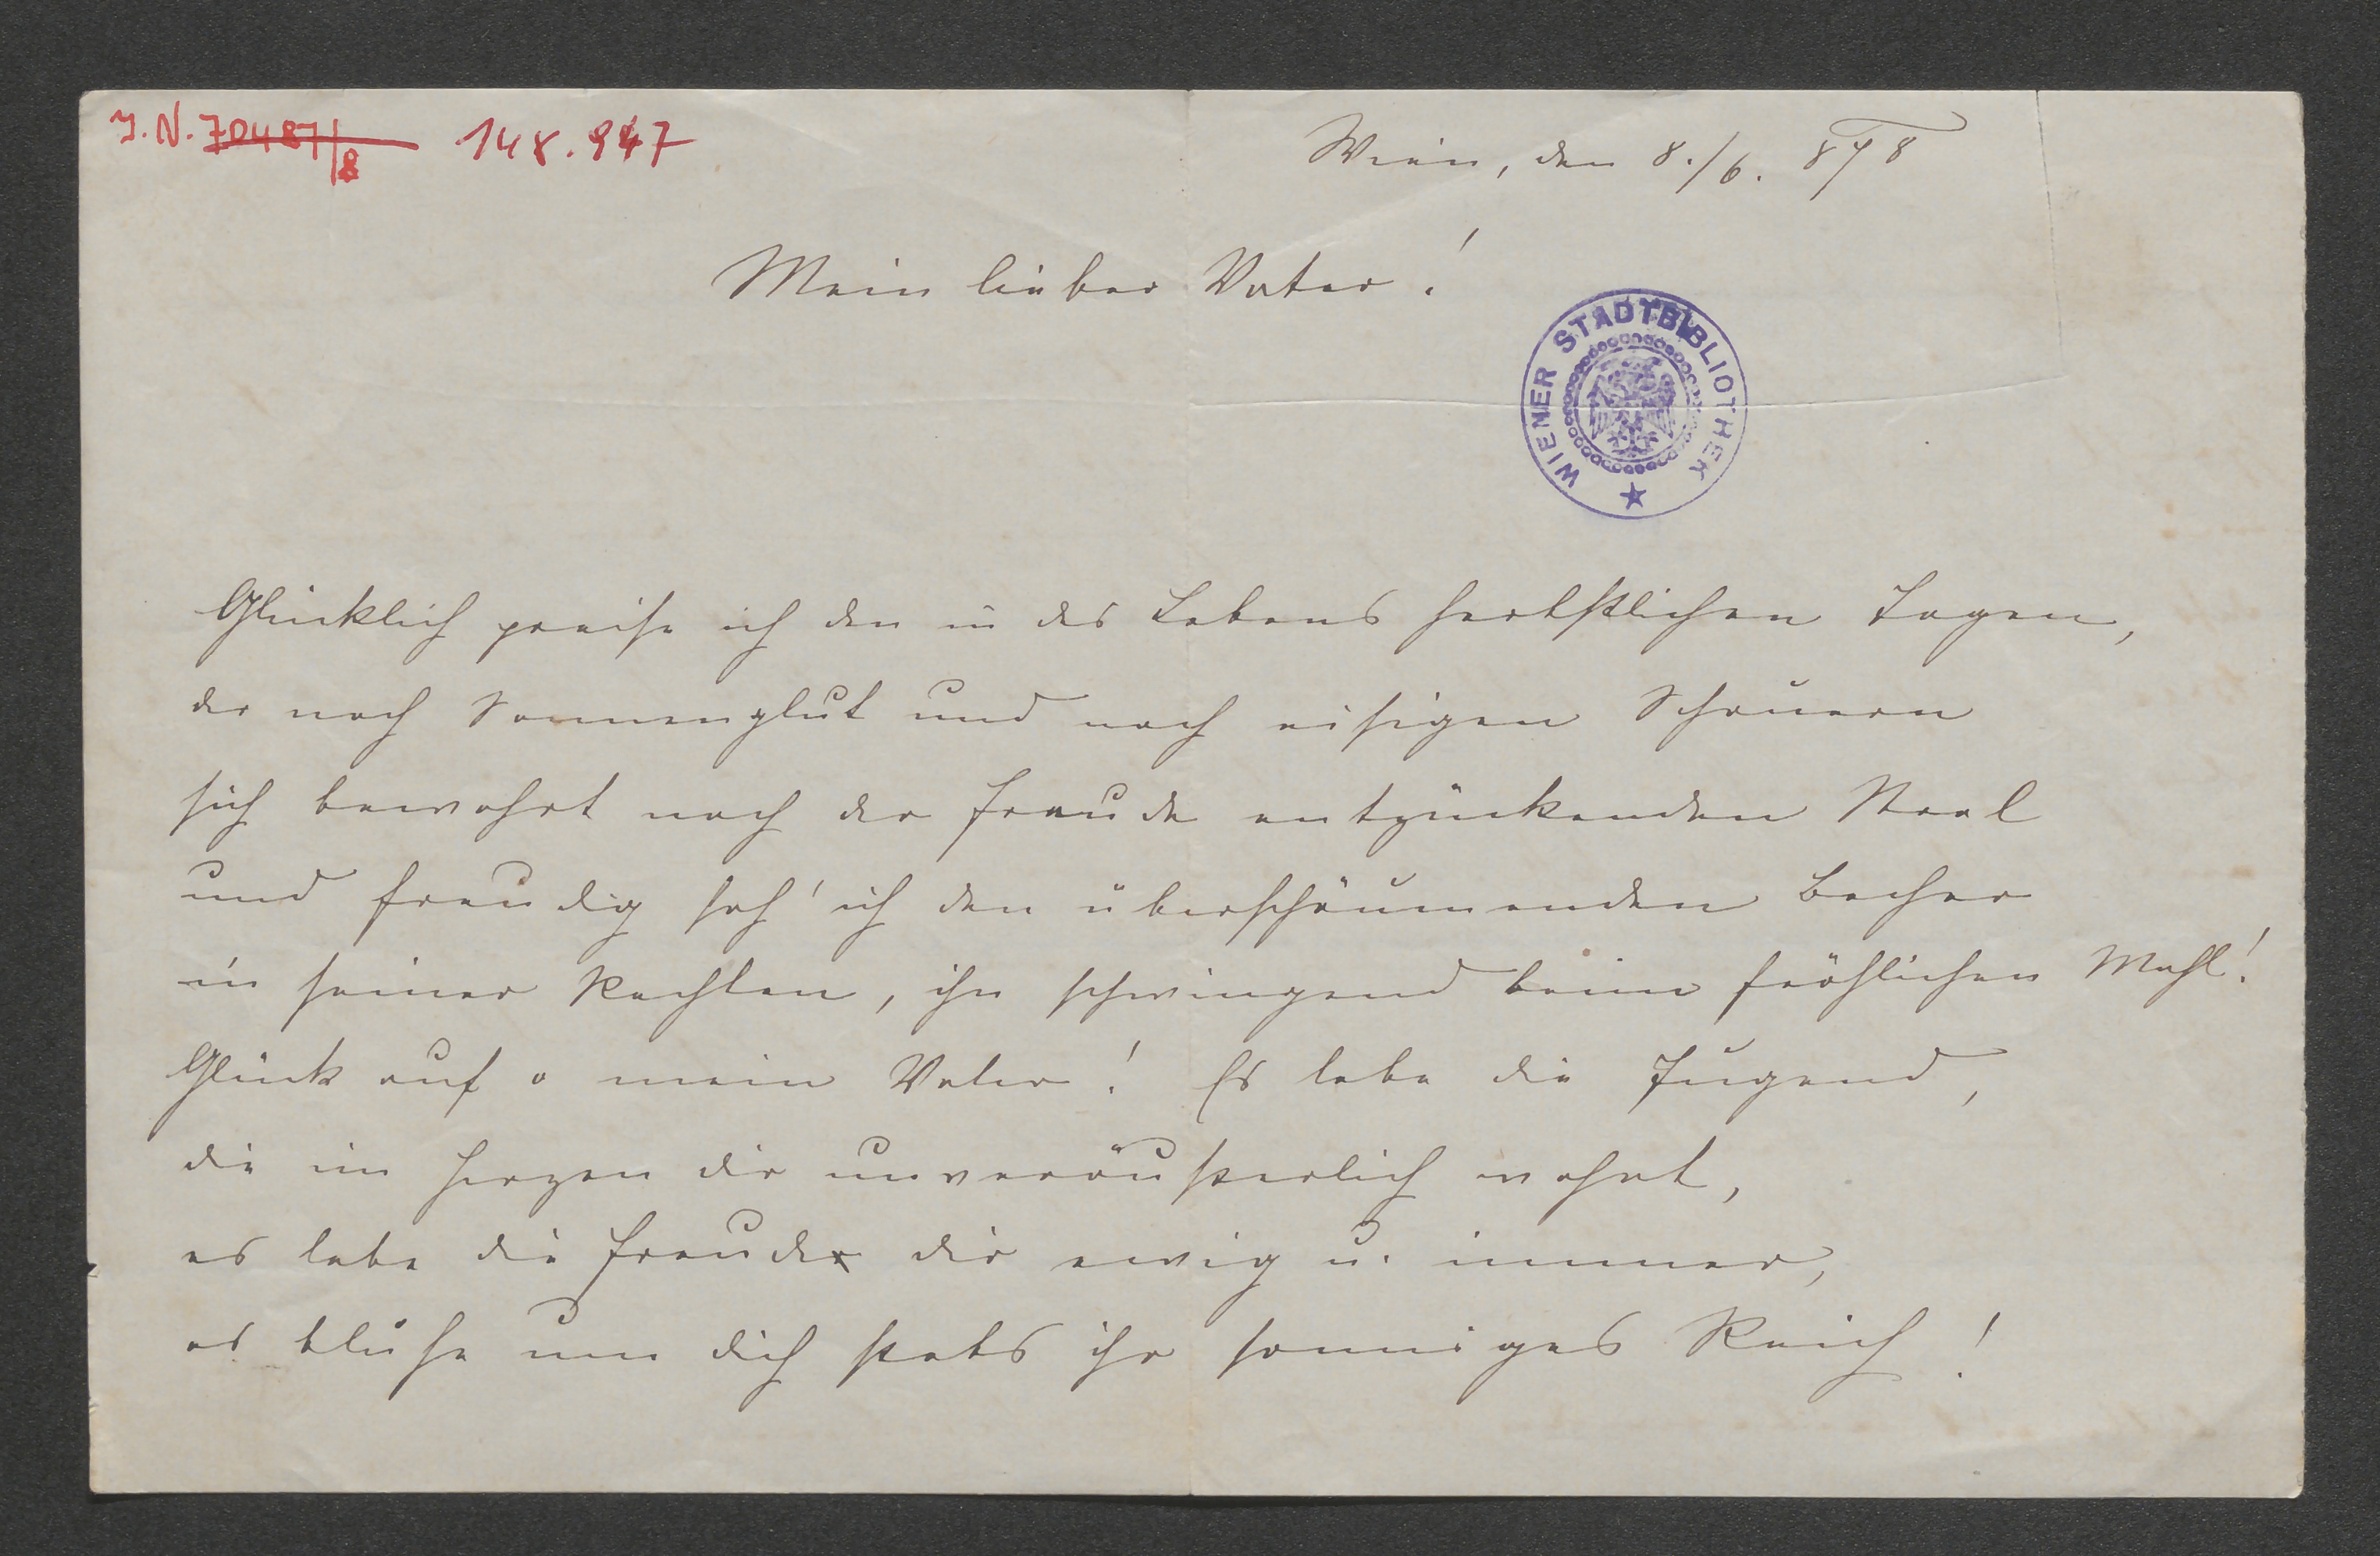 J.N. 70487/8 148.947
Wien, den 8./6. 878
Mein lieber Vater!
WIENER STADTBIBLIOTHEK
Glücklich preise ich den in des Lebens herbstlichen Tagen,
der nach Sonnenglut und nach eisigen Schauern
sich bewahrt noch der Freude entzückenden Stral
und freudig seh' ich den überschäumenden Becher
in seiner Rechten, ihn schwingend beim fröhlichen Mahl!
Glück auf o mein Vater! Es lebe die Jugend,
die im Herzen dir unveräußerlich wohnt,
es lebe die Freude dir ewig u. immer,
es blühe um dich stets ihr sonniges Reich!